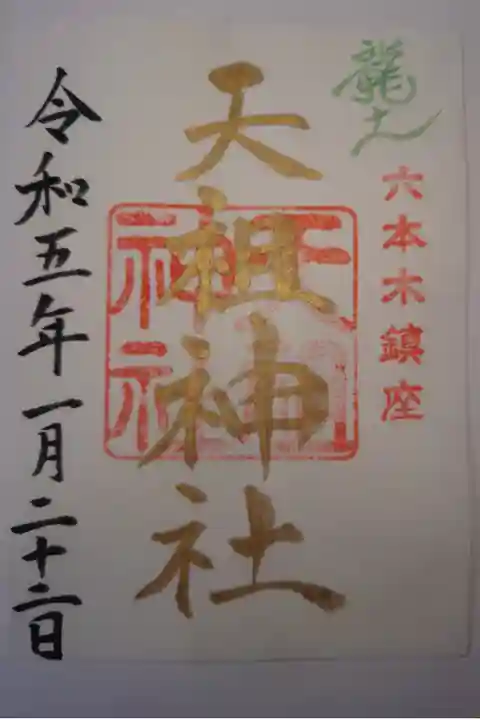 龍土
六本木鎮座
天祖神社
令和五年一月二十二日